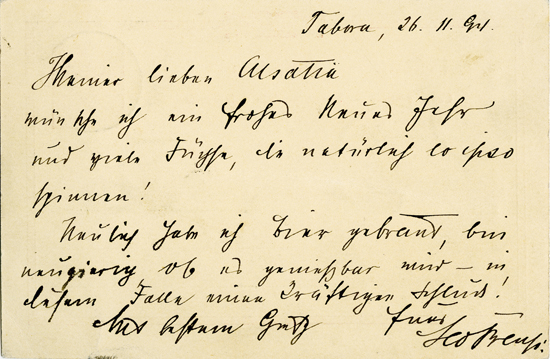 Tabora, 26. 11. 94.
Meiner lieben Alsatia
wünsche ich ein frohes Neues Jahr
und viele Füchse, die natürlich eo ipso
spinnen!
Neulich habe ich Bier gebraut, bin
neugierig ob es geniessbar wird – in
diesem Falle einen kräftigen Schluck!
Aus bestem Euer